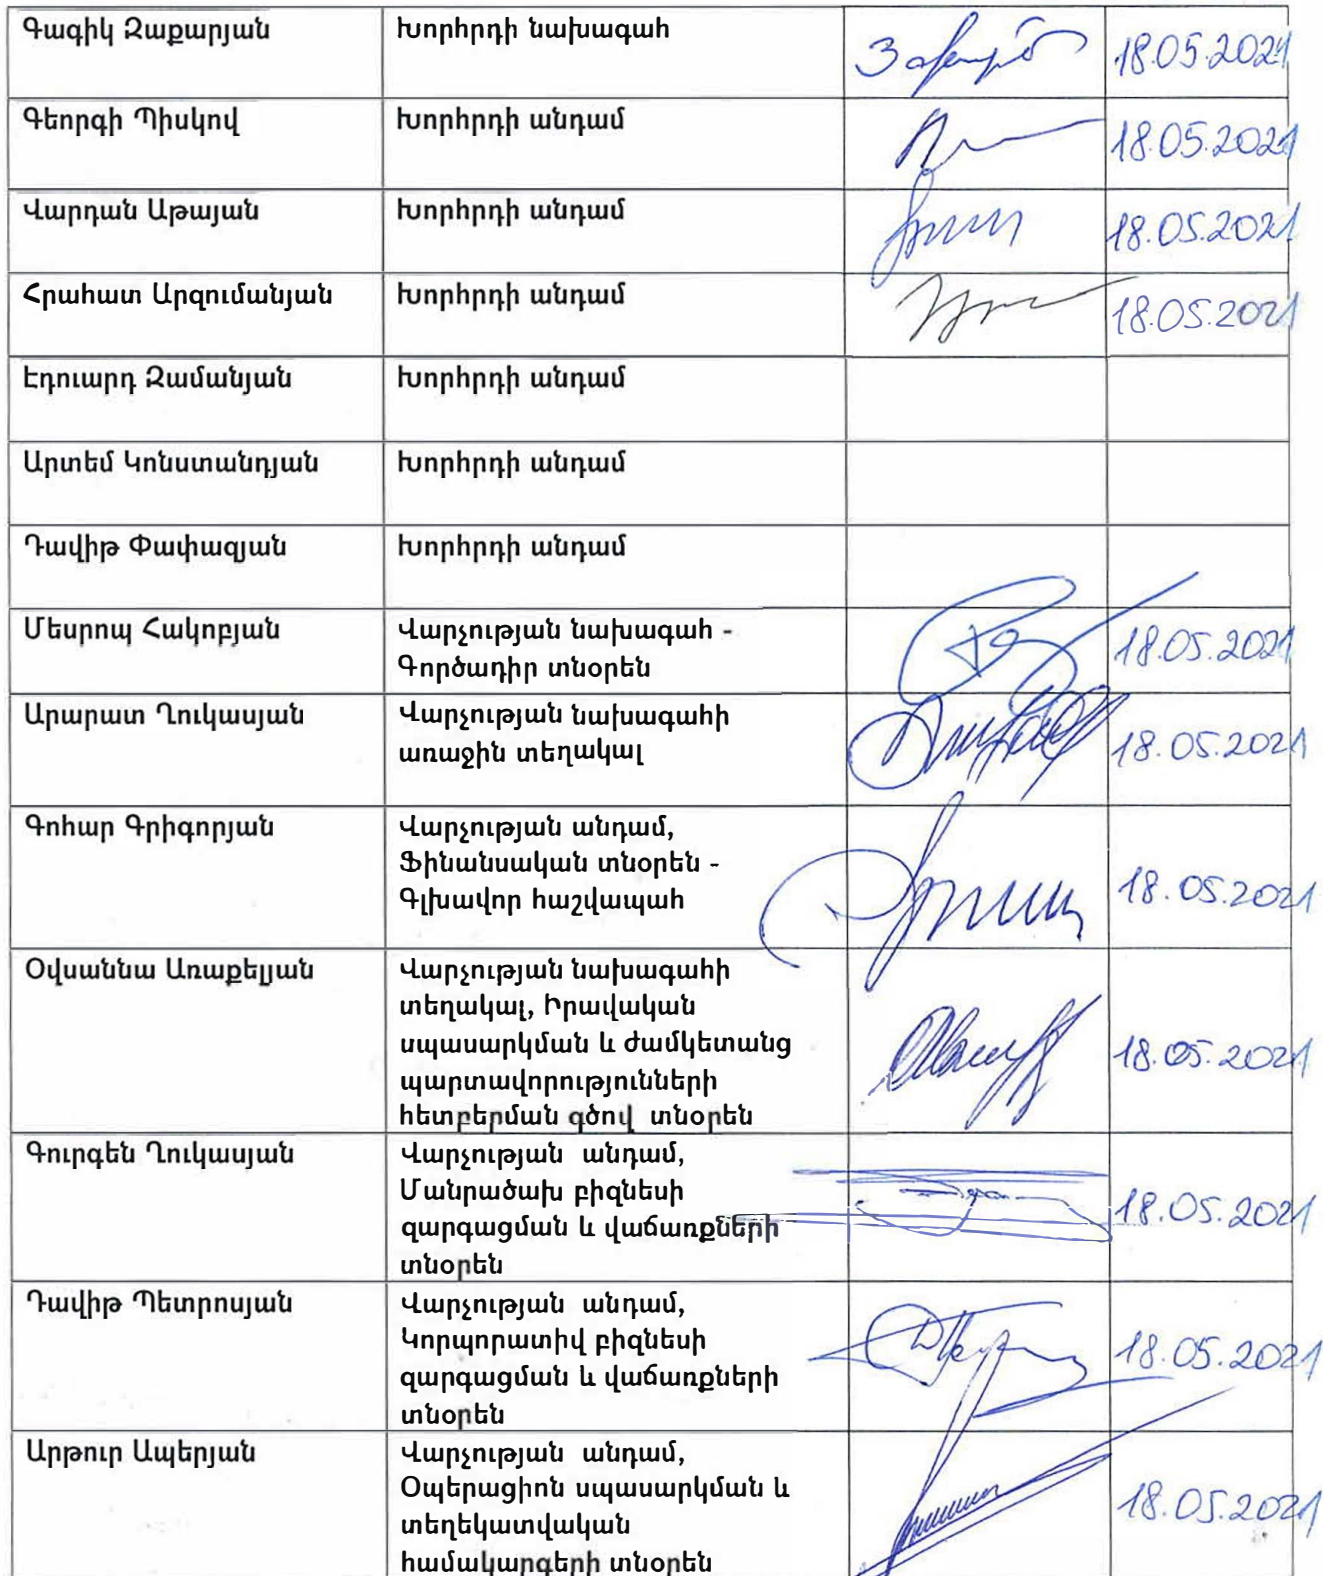 Գագիկ Զաքարյան Խորհրդի նախագահ 18.05.2021
Գեորգի Պիսկով Խորհրդի անդամ 18.05.2021
Վարդան Աթայան Խորհրդի անդամ 18.05.2021
Հրահատ Արզումանյան Խորհրդի անդամ 18.05.2021
Էդուարդ Զամանյան Խորհրդի անդամ
Արտեմ Կոնստանդյան Խորհրդի անդամ
Դավիթ Փափազյան Խորհրդի անդամ
Մեսրոպ Հակոբյան Վարչության նախագահ - 18.05.2021
Գործադիր տնօրեն
Արարատ Ղուկասյան Վարչության նախագահի 18.05.2021
առաջին տեղակալ
Գոհար Գրիգորյան Վարչության անդամ,
Ֆինանսական տնօրեն - 18.05.2021
Գլխավոր հաշվապահ
Օվսաննա Առաքելյան Վարչության նախագահի
տեղակալ, Իրավական
սպասարկման և ժամկետանց 18.05.2021
պարտավորությունների
հետբերման գծով տնօրեն
Գուրգեն Ղուկասյան Վարչության անդամ,
Մանրածախ բիզնեսի 18.05.2021
զարգացման և վաճառքների
տնօրեն
Դավիթ Պետրոսյան Վարչության անդամ,
Կորպորատիվ բիզնեսի 18.05.2021
զարգացման և վաճառքների
տնօրեն
Արթուր Ապերյան Վարչության անդամ,
Օպերացիոն սպասարկման և 18.05.2021
տեղեկատվական
համակարգերի տնօրեն